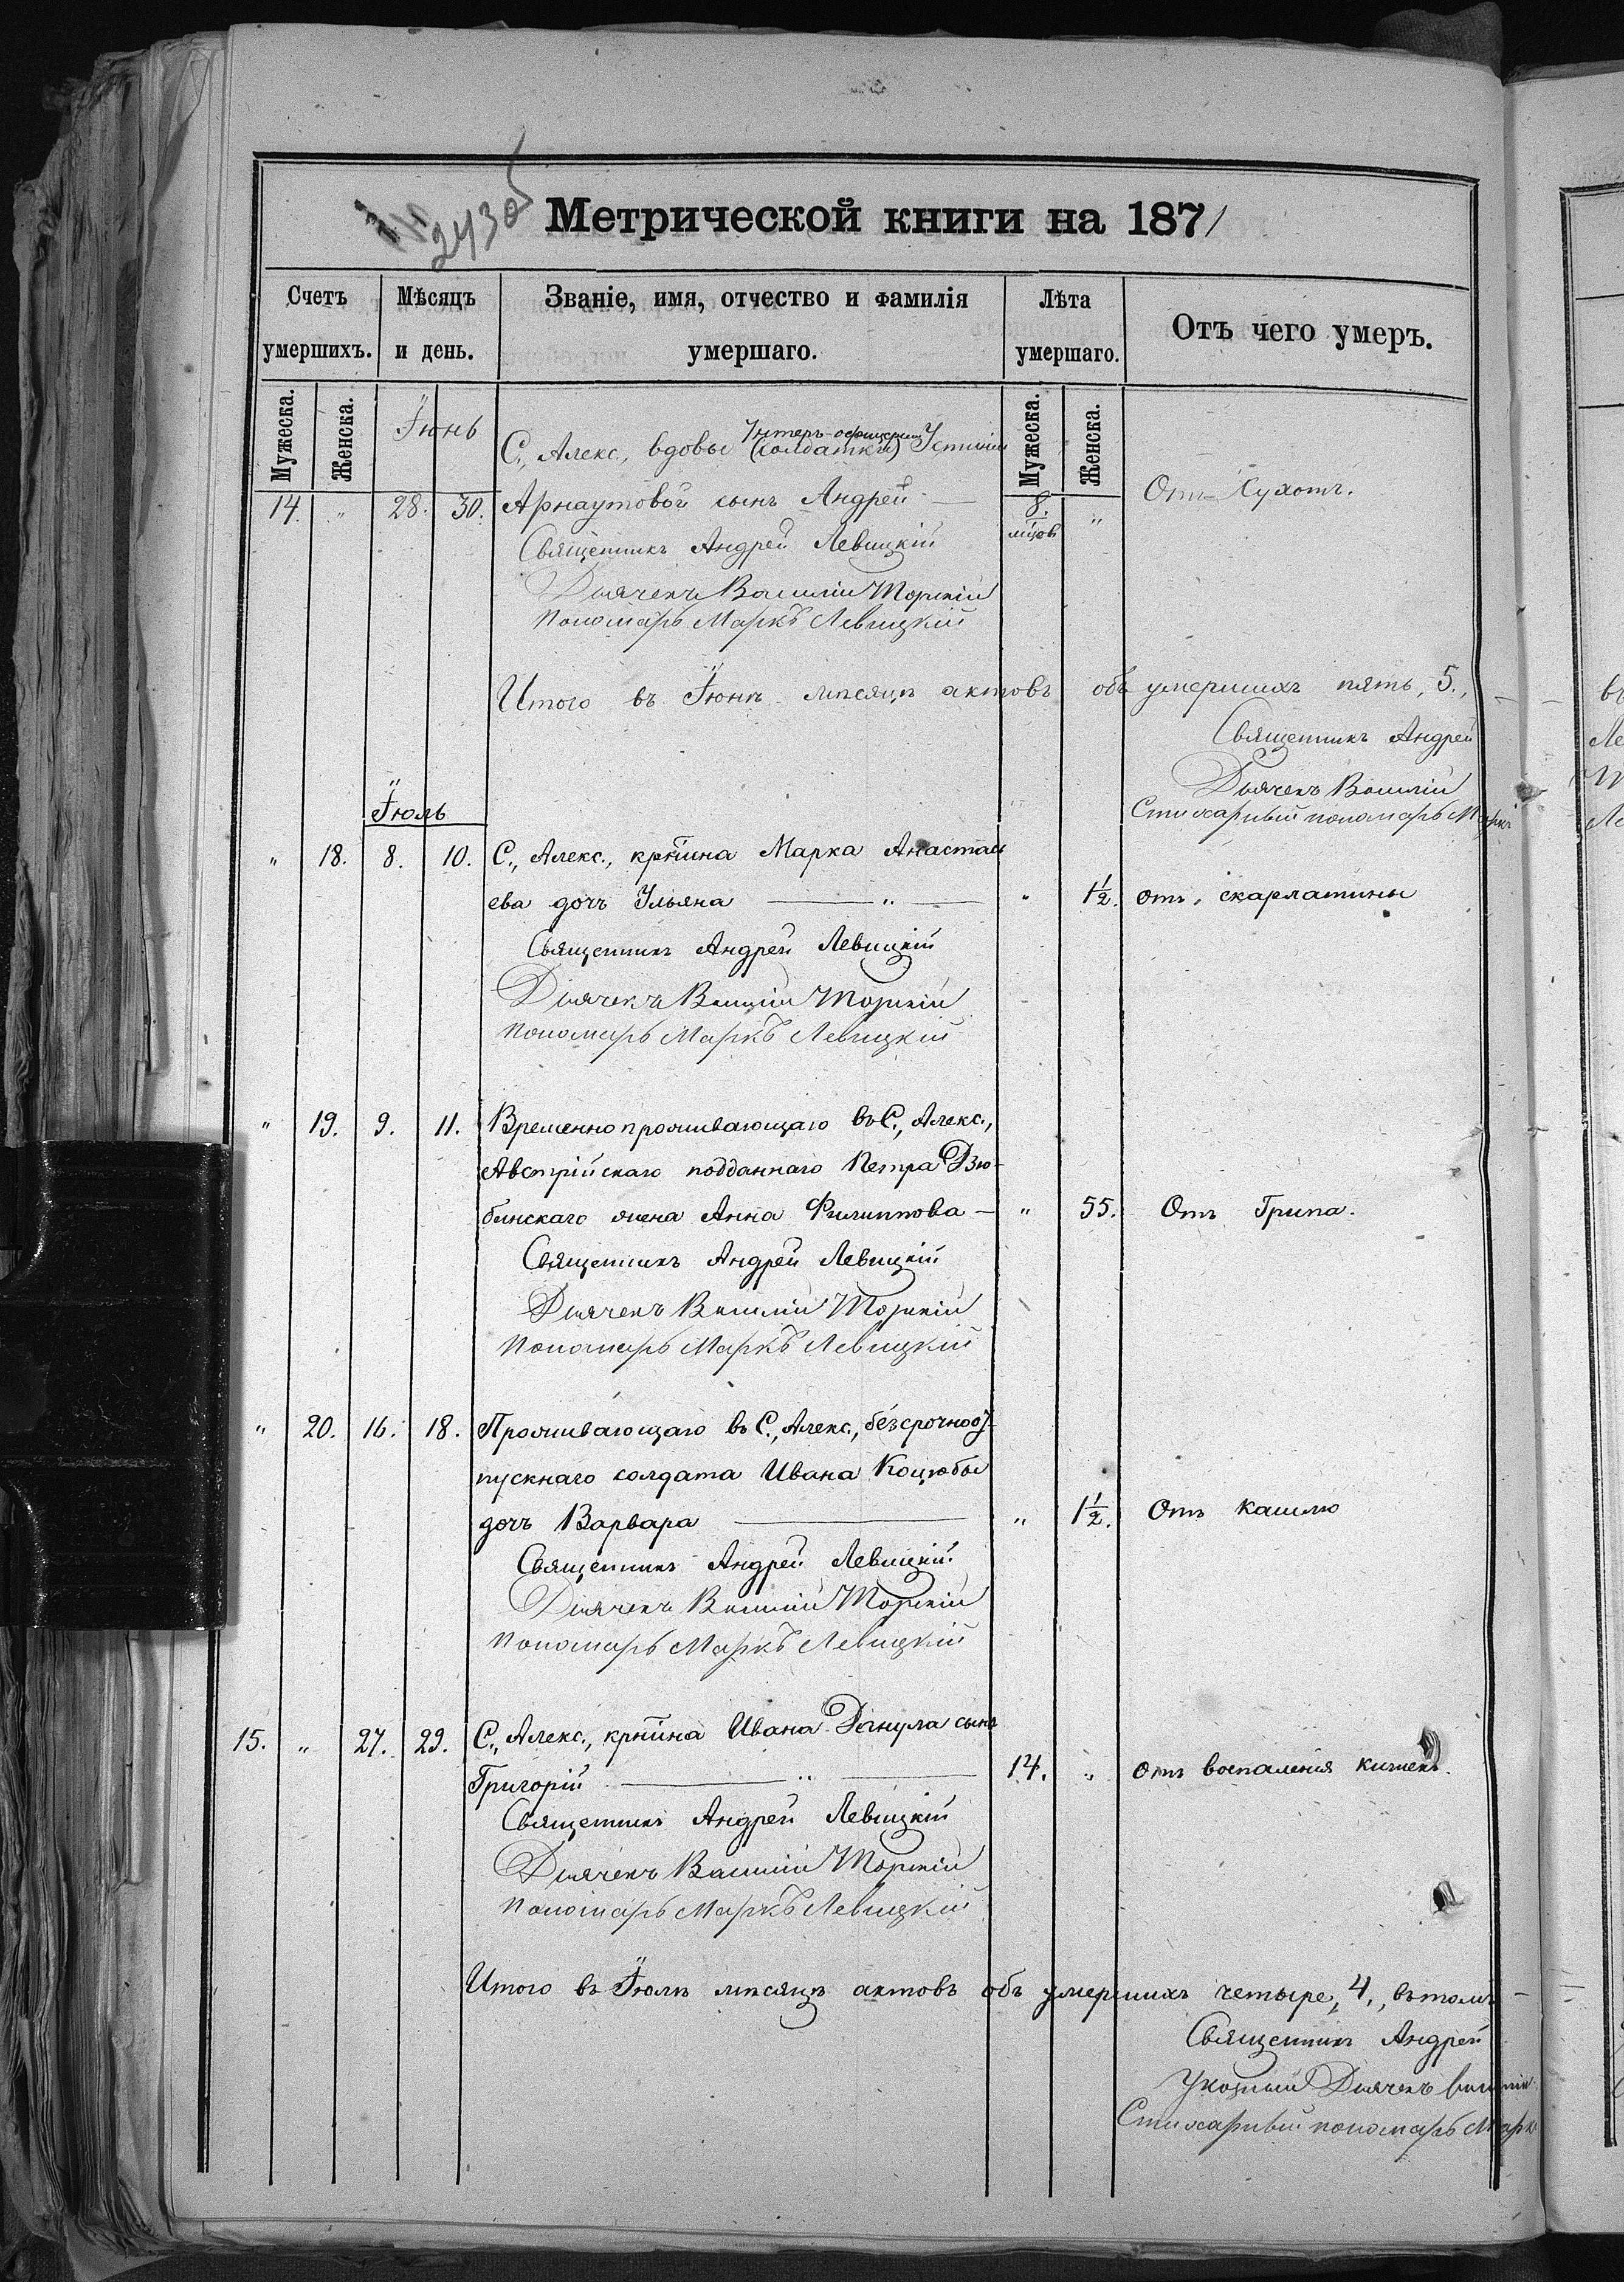 № 2430
Метрической книги на 1871
Счетъ умершихъ.
Мѣсяцъ и день.
Званіе, имя, отчество и фамилія умершаго.
Лѣта умершаго.
Отъ чего умеръ.
Мужеска.
Женска.
Мужеска.
Женска.
Іюнь
Унтеръ-офицерши
С., Алекс., вдовы (солдатки) Устиніи
14. „ 28. 30. Арнаутовой сынъ Андрей — 8. мцов „ Отъ Сухотъ.
Священникъ Андрей Левицкій
Дьячекъ Василій Торскій
Пономарь Маркъ Левицкій
Итого въ Іюнѣ мѣсяцѣ актовъ объ умершихъ пять, 5.,
Священникъ Андрей
Дьячекъ Василій
Стихарный пономарь Маркъ
Іюль
„ 18. 8. 10. С., Алекс., крѣтина Марка Анастасі
ева дочь Ульяна — „ — „ 1½. отъ скарлатины
Священникъ Андрей Левицкій
Дьячекъ Василій Торскій
Пономарь Маркъ Левицкій
„ 19. 9. 11. Временнопроживающаго въ С., Алекс.,
Австрійскаго подданнаго Петра Дзю-
бинскаго жена Анна Филиппова — „ 55. Отъ Грипа.
Священникъ Андрей Левицкій
Дьячекъ Василій Торскій
Пономарь Маркъ Левицкій
„ 20. 16. 18. Проживающаго въ С., Алекс., безсрочноот-
пускнаго солдата Ивана Коцюбы
дочь Варвара — „ 1½. Отъ Кашлю
Священникъ Андрей Левицкій
Дьячекъ Василій Торскій
Пономарь Маркъ Левицкій
15. „ 27. 29. С., Алекс., крѣтина Ивана Данула сынъ
Григорій — „ — 14. „ Отъ воспаленія кишекъ.
Священникъ Андрей Левицкій
Дьячекъ Василій Торскій
Пономарь Маркъ Левицкій
Итого въ Іюлѣ мѣсяцѣ актовъ объ умершихъ четыре, 4., въ томъ
Священникъ Андрей
Указный Дьячекъ Василій
Стихарный пономарь Марк